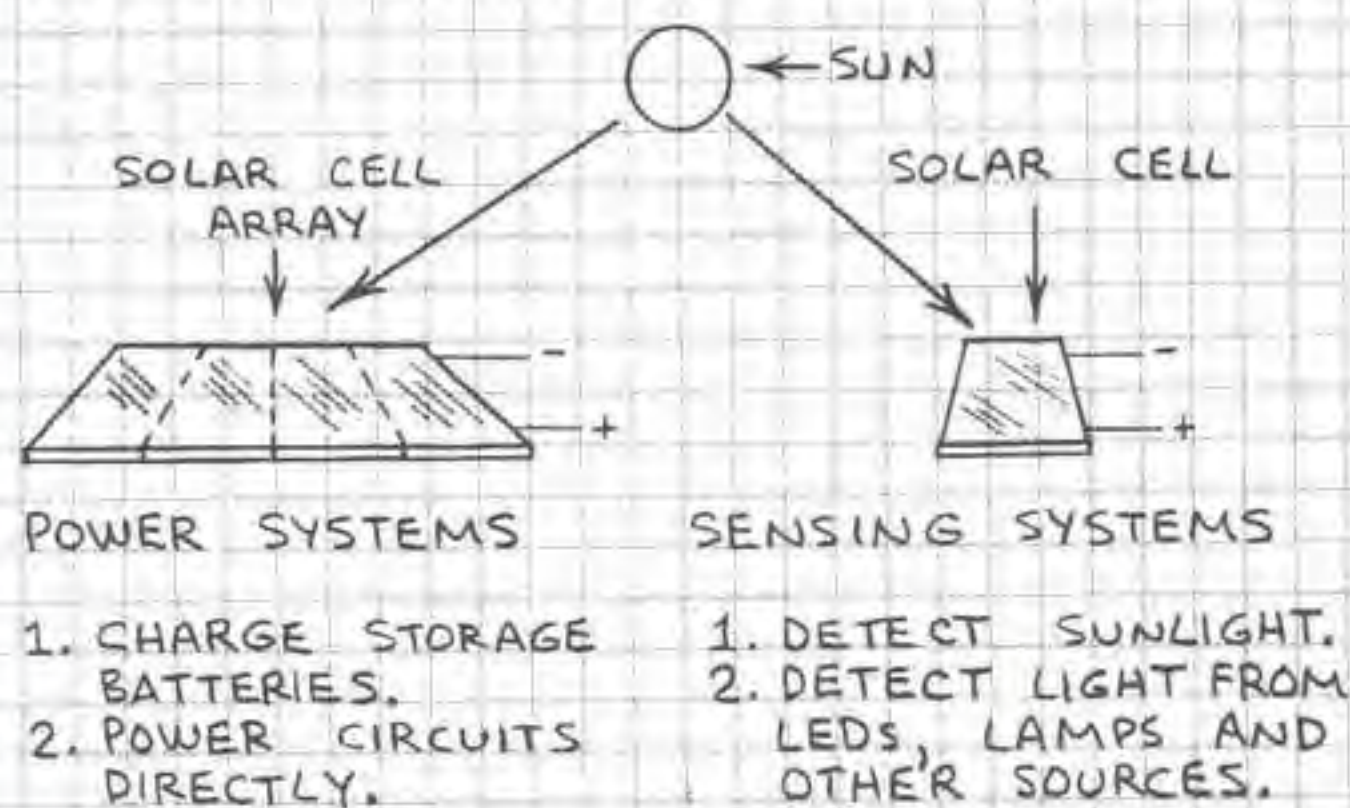 SUN
SOLAR CELL
ARRAY
SOLAR CELL
-
+
-
+
POWER SYSTEMS
1. CHARGE STORAGE
BATTERIES.
2. POWER CIRCUITS
DIRECTLY.
SENSING SYSTEMS
1. DETECT SUNLIGHT.
2. DETECT LIGHT FROM
LEDS, LAMPS AND
OTHER SOURCES.